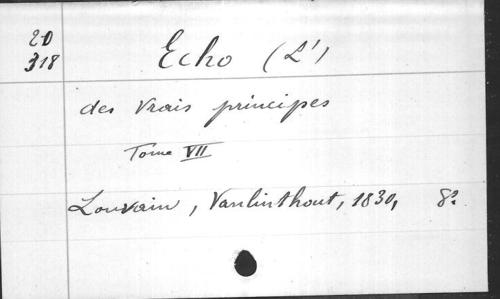 20
318
Echo (L')
des Vrais principes
Tome VII
Louvain, Vanlinthout, 1830, 8º